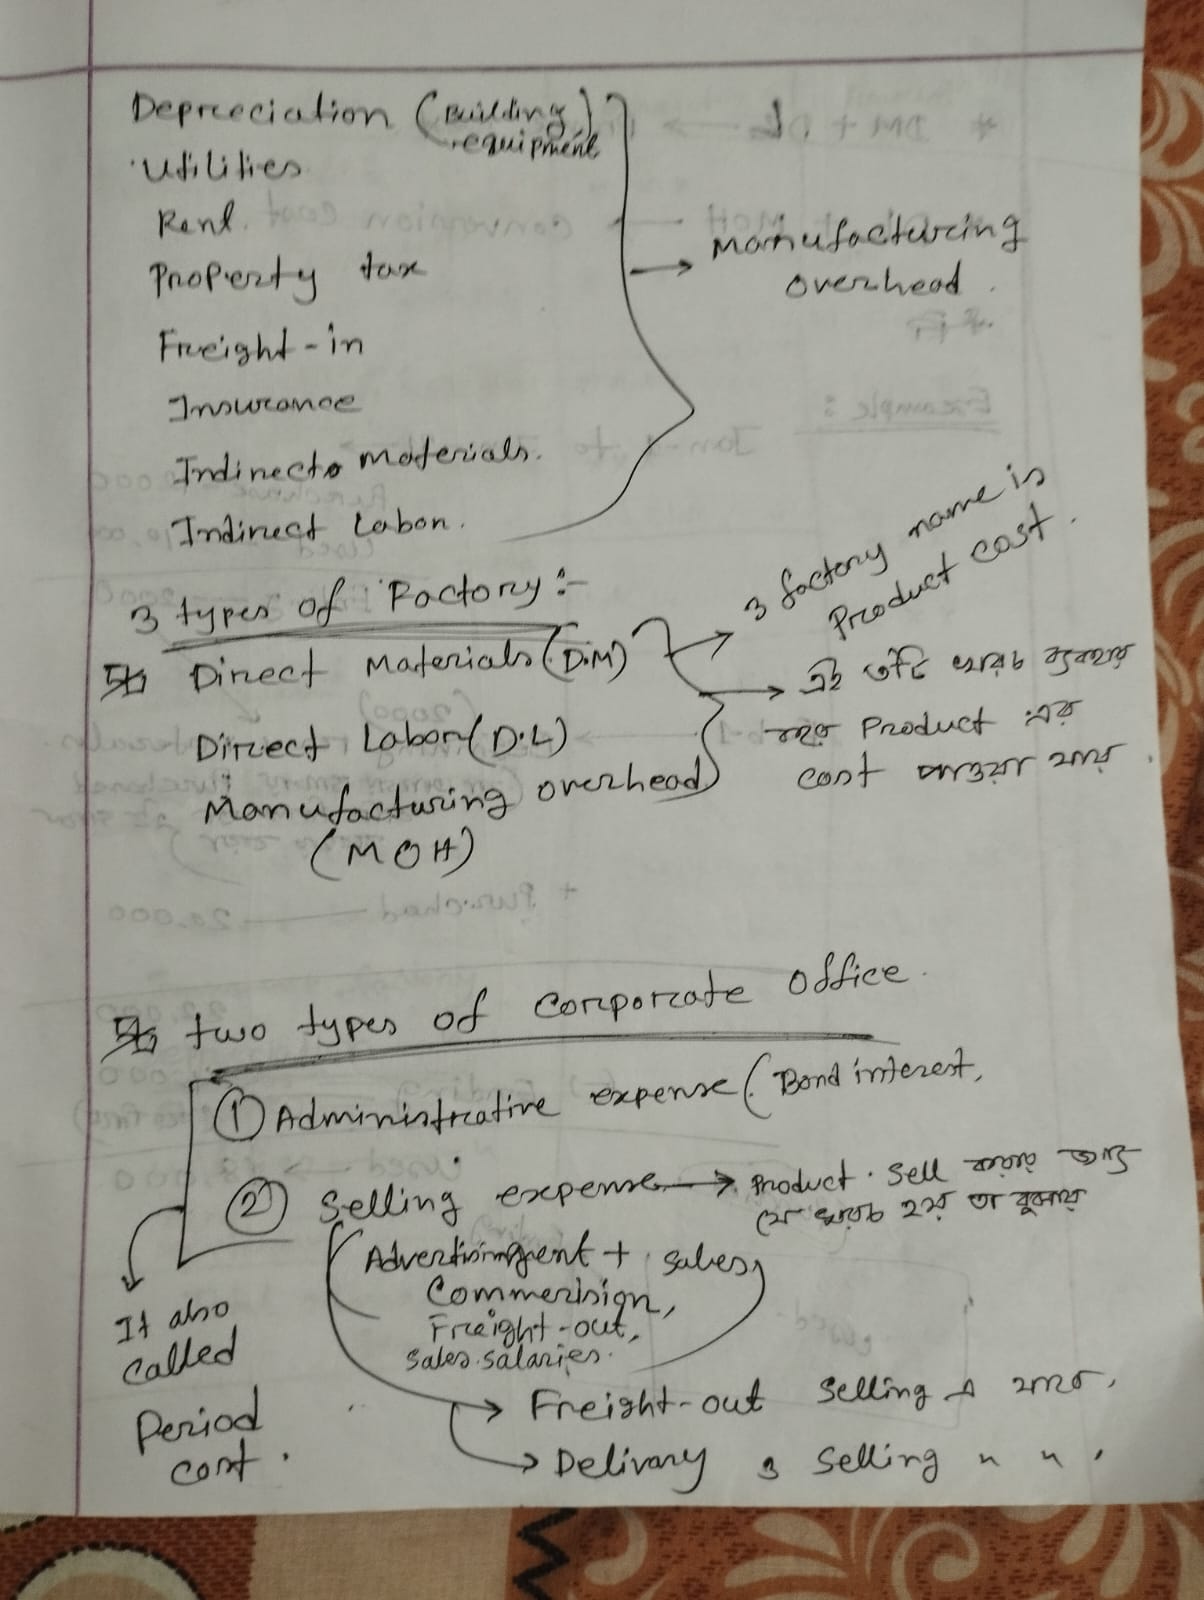 Depreciation (Building,
equipment)
Utilities
Rent.
Property tax
Freight-in
Insurance
Indirect materials.
Indirect Labor.
→ Manufacturing
overhead.
3 types of Factory :-
Direct Materials (D.M)
Direct Labor (D.L)
Manufacturing overhead
(MOH)
→ 3 factory name is
Product cost.
→ এই ৩টি খরচ ব্যবহার
করে Product এর
cost পাওয়া যায়.
two types of corporate office.
① Administrative expense (Bond interest,
② Selling expense → Product. sell করার জন্য
যে খরচ হয় তা বুঝায়
(Advertisingment + sales,
Commerision,
Freight-out,
sales salaries.
It also
called
Period
cost.
→ Freight-out selling এ যাবে,
→ Delivary ও selling " "